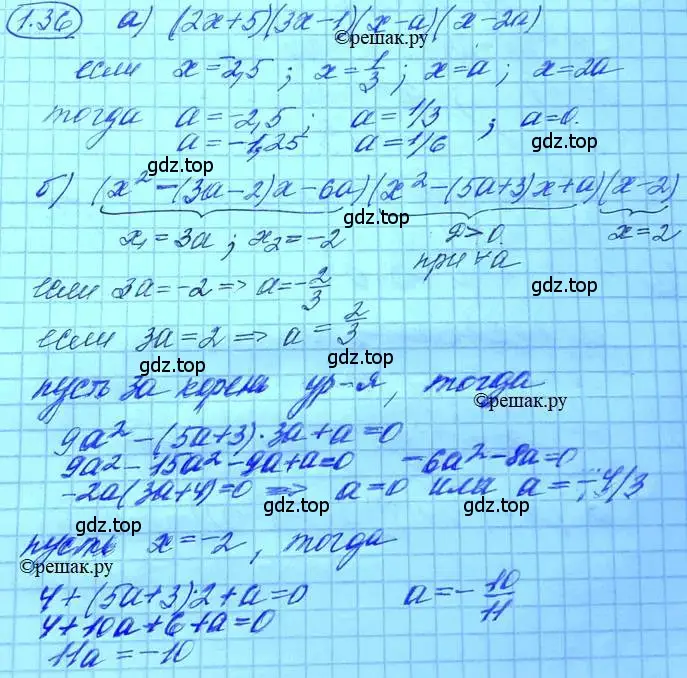 1.36 а) (2x+5)(3x-1)(x-a)(x-2a)
©решак.ру
если x=-2,5 ; x=1/3 ; x=a ; x=2a
gdz.top
тогда a=-2,5 ; a=1/3 ; a=0.
a=-1,25 a=1/6
gdz.top gdz.top
б) (x²-(3a-2)x-6a)(x²-(5a+3)x+a)(x-2)
gdz.top
x₁=3a ; x₂=-2 Д>0. x=2
при ∀a
если 3a=-2 => a=-2/3
gdz.top gdz.top
если 3a=2 => a=2/3
пусть 3a корень ур-я, тогда
©решак.ру
9a²-(5a+3)·3a+a=0
9a²-15a²-9a+a=0 -6a²-8a=0
gdz.top
-2a(3a+4)=0 => a=0 или a=-4/3
gdz.top gdz.top
пусть x=-2, тогда
©решак.ру ©решак.ру
4+(5a+3)·2+a=0 a=-10/11
4+10a+6+a=0
gdz.top gdz.top
11a=-10